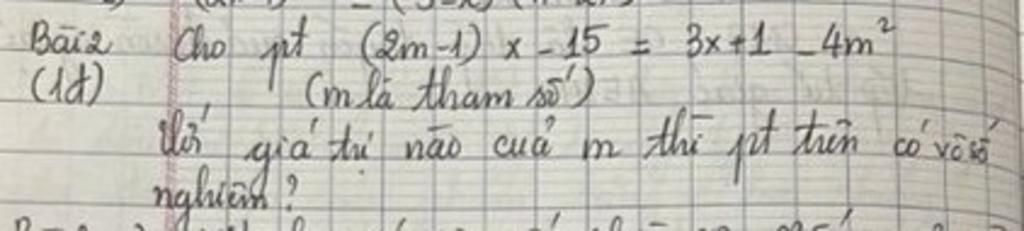 Bài 2 Cho pt (2m-1) x - 15 = 3x+1 - 4m²
(1đ) (m là tham số)
Với giá trị nào của m thì pt trên có vô số
nghiệm?